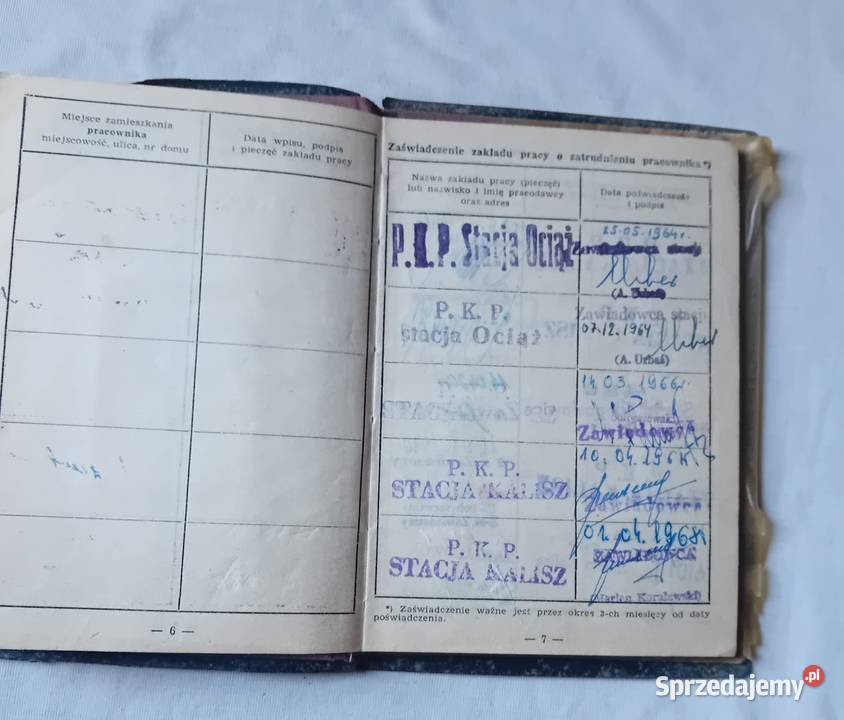 Miejsce zamieszkania
pracownika
miejscowość, ulica, nr domu
Data wpisu, podpis
i pieczęć zakładu pracy
— 6 —
Zaświadczenie zakładu pracy o zatrudnieniu pracownika*)
Nazwa zakładu pracy (pieczęć)
lub nazwisko i imię pracodawcy
oraz adres
Data poświadczenia
i podpis
P.K.P. Stacja Ociąż
25.05.1964r.
Zawiadowca stacji
(A. Urbaś)
P. K. P.
stacja Ociąż
Zawiadowca stacji
07.12.1964
(A. Urbaś)
14.03.1966r.
Zawiadowca
P. K. P.
STACJA KALISZ
10.04.196
Zawiadowca
P. K. P.
STACJA KALISZ
01.04.1968r
ZAWIADOWCA
(Marian Koralewski)
*) Zaświadczenie ważne jest przez okres 3-ch miesięcy od daty
poświadczenia.
— 7 —
Sprzedajemy.pl